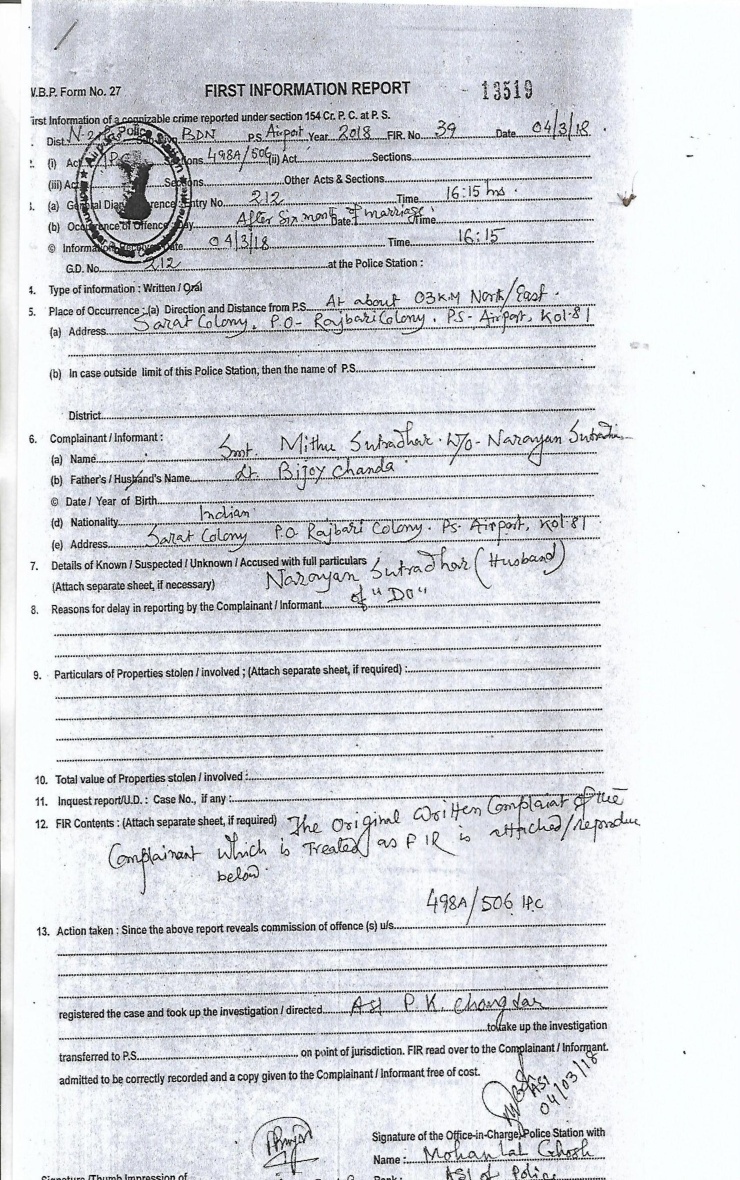 W.B.P. Form No. 27 FIRST INFORMATION REPORT - 13519
First Information of a cognizable crime reported under section 154 Cr. P. C. at P. S.
Dist. N-24 BDN P.S. Airport Year 2018 FIR. No. 39 Date 04/3/18
(i) Act IPC Sections 498A/506 (ii) Act Sections
(iii) Act Sections Other Acts & Sections
(a) General Diary Reference: Entry No. 212 Time 16:15 hrs.
(b) Occurrence of Offence: Day After Six month of marriage Date Time
© Information Received Date 04/3/18 Time 16:15
G.D. No. 212 at the Police Station :
4. Type of information : Written / Oral
5. Place of Occurrence ; (a) Direction and Distance from P.S. At about 03KM North/East.
(a) Address Sarat Colony, P.O- Rajbari Colony. P.S- Airport, Kol-81
(b) In case outside limit of this Police Station, then the name of P.S.
District
6. Complainant / Informant :
(a) Name Smt. Mithu Sutradhar. W/o- Narayan Sutradhar
(b) Father's / Husband's Name Lt. Bijoy Chanda
© Date / Year of Birth
(d) Nationality Indian
(e) Address Sarat Colony P.O Rajbari Colony. Ps- Airport, Kol-81
7. Details of Known / Suspected / Unknown / Accused with full particulars
(Attach separate sheet, if necessary) Narayan Sutradhar (Husband)
of "DO"
8. Reasons for delay in reporting by the Complainant / Informant
9. Particulars of Properties stolen / involved ; (Attach separate sheet, if required) :
10. Total value of Properties stolen / involved :
11. Inquest report/U.D. : Case No., if any :
12. FIR Contents : (Attach separate sheet, if required) The Original Written Complaint of the
Complainant which is Treated as FIR is attached/reproduce
below.
498A/506 IPC
13. Action taken : Since the above report reveals commission of offence (s) u/s
registered the case and took up the investigation / directed ASI P.K. Changdar
to take up the investigation
transferred to P.S. on point of jurisdiction. FIR read over to the Complainant / Informant.
admitted to be correctly recorded and a copy given to the Complainant / Informant free of cost.
ASI
04/03/18
Signature of the Office-in-Charge, Police Station with
Name : Mohanlal Ghosh
Signature /Thumb Impression of
Rank : ASI of Police